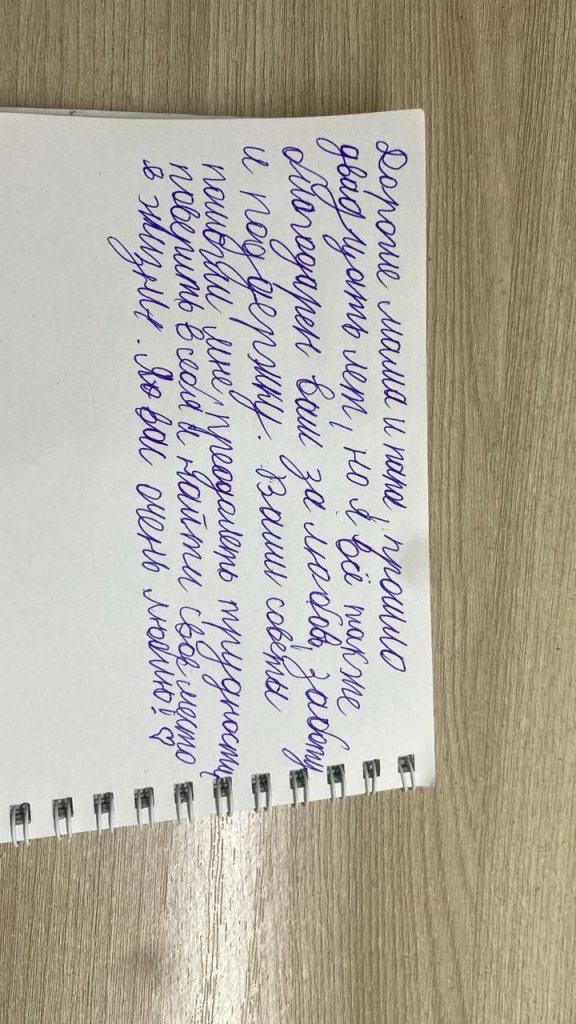 Дорогие мама и папа прошло
двадцать лет, но я всё также
благодарен вам за любовь, заботу
и поддержку. Ваши советы
помогли мне преодолеть трудности,
поверить в себя и найти своё место
в жизни. Я вас очень люблю! ♡